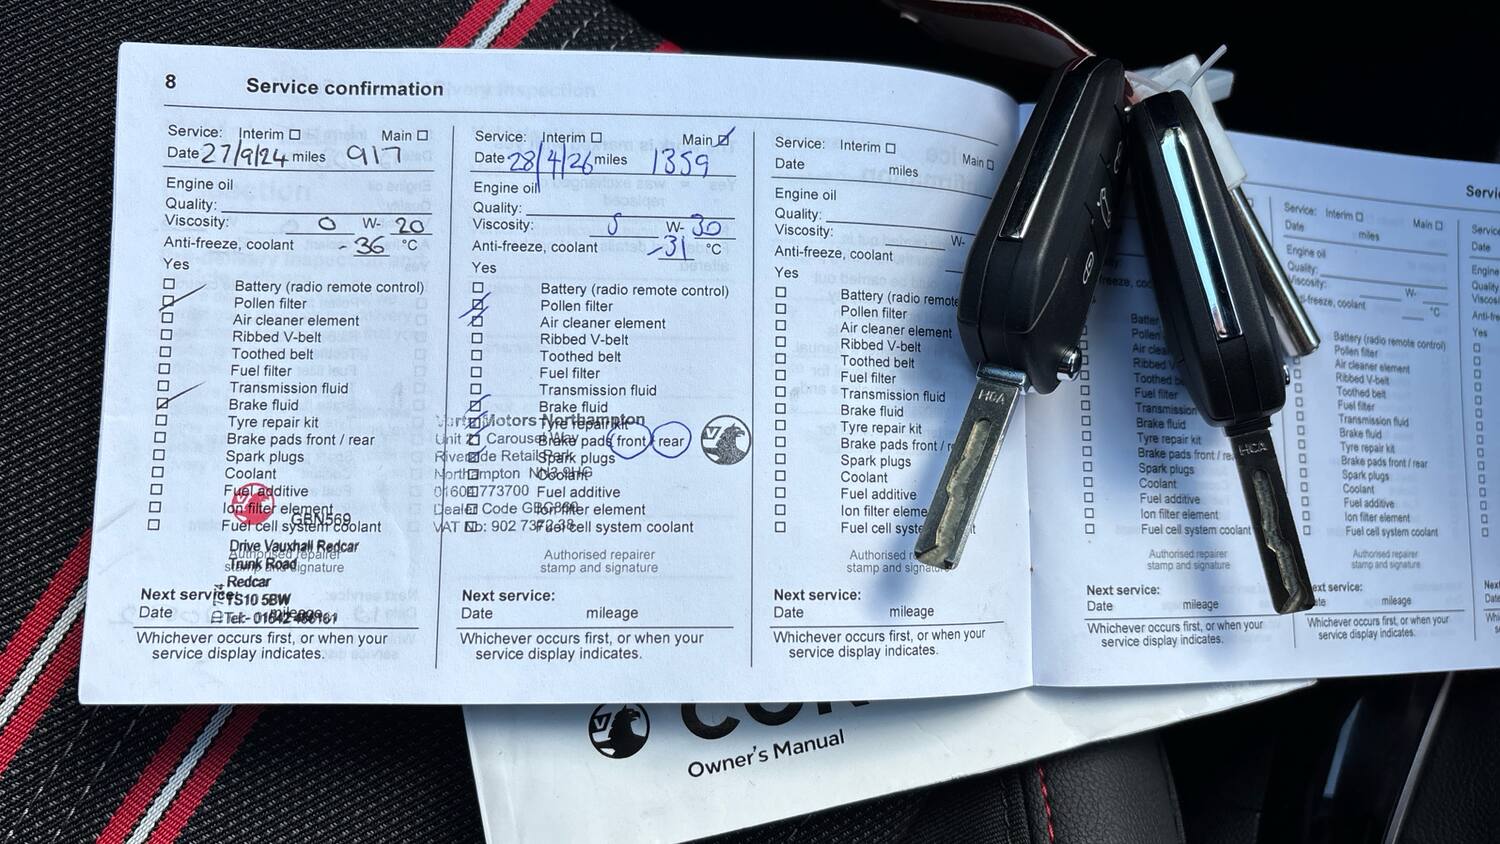 8 Service confirmation
Service: Interim Main
Date 27/9/24 miles 917
Engine oil
Quality:
Viscosity: 0 W- 20
Anti-freeze, coolant -36 °C
Yes
Battery (radio remote control)
Pollen filter
Air cleaner element
Ribbed V-belt
Toothed belt
Fuel filter
Transmission fluid
Brake fluid
Tyre repair kit
Brake pads front / rear
Spark plugs
Coolant
Fuel additive
Ion filter element
GBN569
Fuel cell system coolant
Drive Vauxhall Redcar
Authorised repairer
Trunk Road
stamp and signature
Redcar
Next service:
TS10 5BW
Date mileage
Tel:- 01642
Whichever occurs first, or when your
service display indicates.
Service: Interim Main
Date 28/4/26 miles 1359
Engine oil
Quality:
Viscosity: W- 30
Anti-freeze, coolant -31 °C
Yes
Battery (radio remote control)
Pollen filter
Air cleaner element
Ribbed V-belt
Toothed belt
Fuel filter
Transmission fluid
Brake fluid
Motors Northampton
Tyre repair kit
Unit 2 Carousel Way
Brake pads front / rear
Riverside Retail Park
Spark plugs
Northampton NN3 9HG
Coolant
01604 773700
Fuel additive
Dealer Code
Ion filter element
VAT No: 902
Fuel cell system coolant
Authorised repairer
stamp and signature
Next service:
Date mileage
Whichever occurs first, or when your
service display indicates.
Service: Interim Main
Date miles
Engine oil
Quality:
Viscosity: W-
Anti-freeze, coolant
Yes
Battery (radio remote
Pollen filter
Air cleaner element
Ribbed V-belt
Toothed belt
Fuel filter
Transmission fluid
Brake fluid
Tyre repair kit
Brake pads front / r
Spark plugs
Coolant
Fuel additive
Ion filter element
Fuel cell syste
Authorised r
stamp and signature
Next service:
Date mileage
Whichever occurs first, or when your
service display indicates.
HCA
Brake fluid
Tyre repair kit
Brake pads front / rea
Spark plugs
Coolant
Fuel additive
Ion filter element
Fuel cell system coolant
Authorised repairer
stamp and signature
Next service:
Date mileage
Whichever occurs first, or when your
service display indicates.
HCA
Service: Interim Main
Date miles
Engine oil
Quality:
Viscosity: W-
coolant °C
Battery (radio remote control)
Pollen filter
Air cleaner element
Ribbed V-belt
Toothed belt
Fuel filter
Transmission fluid
Brake fluid
Tyre repair kit
Brake pads front / rear
Spark plugs
Coolant
Fuel additive
Ion filter element
Fuel cell system coolant
Authorised repairer
stamp and signature
Next service:
mileage
Whichever occurs first, or when your
service display indicates.
Owner's Manual